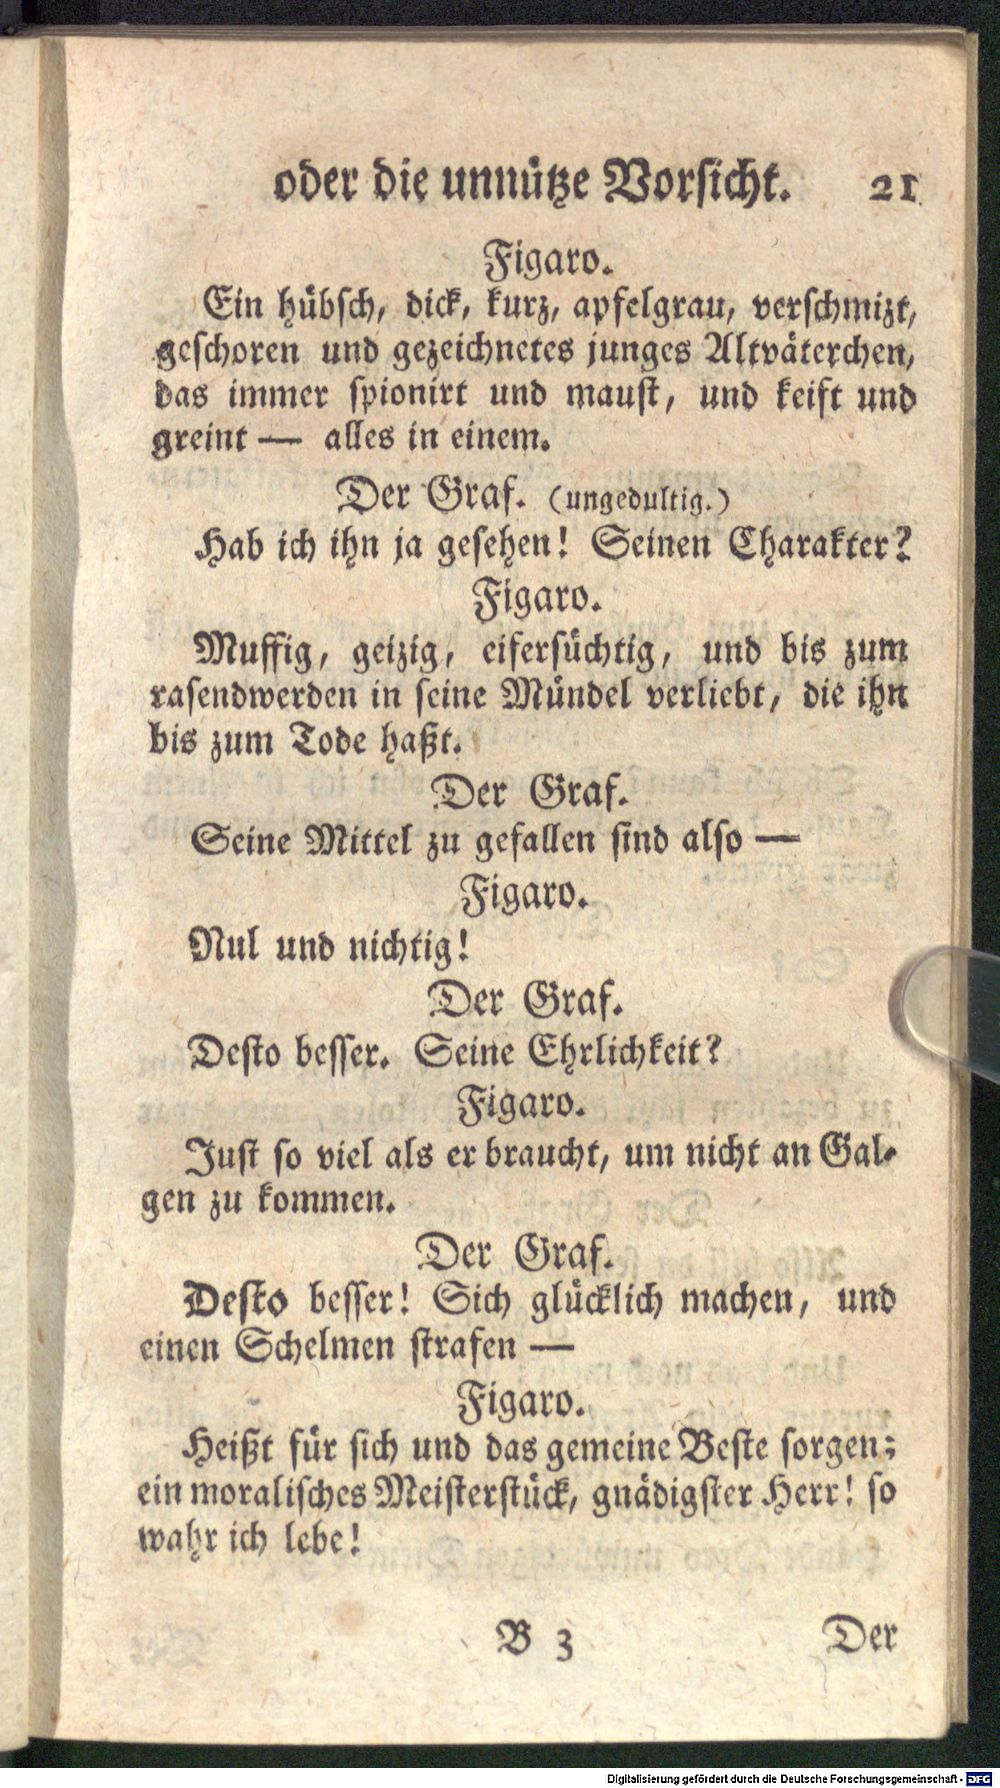 oder die unnütze Vorsicht. 21
Figaro.
Ein hübsch, dick, kurz, apfelgrau, verschmizt,
geschoren und gezeichnetes junges Altväterchen,
das immer spionirt und maust, und keift und
greint — alles in einem.
Der Graf. (ungedultig.)
Hab ich ihn ja gesehen! Seinen Charakter?
Figaro.
Muffig, geizig, eifersüchtig, und bis zum
rasendwerden in seine Mündel verliebt, die ihn
bis zum Tode haßt.
Der Graf.
Seine Mittel zu gefallen sind also —
Figaro.
Nul und nichtig!
Der Graf.
Desto besser. Seine Ehrlichkeit?
Figaro.
Just so viel als er braucht, um nicht an Gal-
gen zu kommen.
Der Graf.
Desto besser! Sich glücklich machen, und
einen Schelmen strafen —
Figaro.
Heißt für sich und das gemeine Beste sorgen;
ein moralisches Meisterstück, gnädigster Herr! so
wahr ich lebe!
B 3 Der
Digitalisierung gefördert durch die Deutsche Forschungsgemeinschaft - DFG